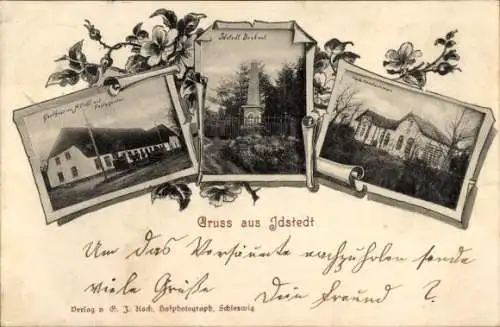 Idstedt Denkmal
Gruss aus Jdstedt
Um das Versäumte nachzuholen sende
viele Grüße Dein Freund ?
Verlag v. G. J. Koch, Hofphotograph, Schleswig